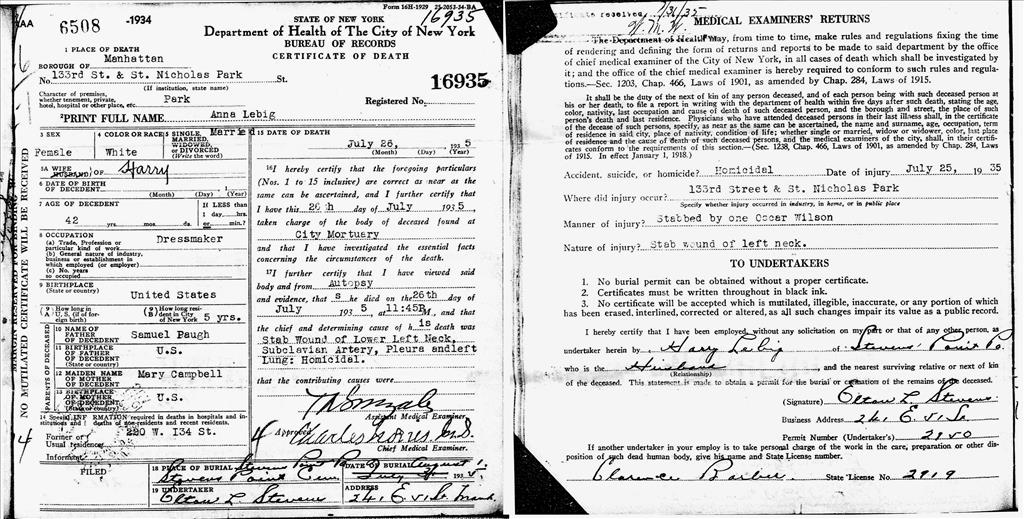 Form 16H-1929 25-2053-34-BA
16935
6508 -1934
STATE OF NEW YORK
Department of Health of The City of New York
BUREAU OF RECORDS
CERTIFICATE OF DEATH
1 PLACE OF DEATH
Manhattan
BOROUGH OF
No. 133rd St. & St. Nicholas Park St.
(If institution, state name)
Character of premises, whether tenement, private, hotel, hospital or other place, etc. Park
16935
Registered No.
2 PRINT FULL NAME Anna Lebig
3 SEX
Female
4 COLOR OR RACE
White
5 SINGLE, MARRIED, WIDOWED, or DIVORCED (Write the word)
Married
5A WIFE HUSBAND OF Harry
6 DATE OF BIRTH OF DECEDENT
(Month) (Day) (Year)
7 AGE OF DECEDENT
42
yrs. mos. ds.
If LESS than 1 day hrs. or min.?
8 OCCUPATION
(a) Trade, Profession or particular kind of work
Dressmaker
(b) General nature of industry, business or establishment in which employed (or employer)
(c) No. years so occupied
9 BIRTHPLACE
(State or country)
United States
(A) How long in U.S. (if of foreign birth)
(B) How long resident in City of New York 5 yrs.
PARENTS OF DECEDENT
10 NAME OF FATHER OF DECEDENT
Samuel Paugh
11 BIRTHPLACE OF FATHER OF DECEDENT (State or country)
U.S.
12 MAIDEN NAME OF MOTHER OF DECEDENT
Mary Campbell
13 BIRTHPLACE OF MOTHER OF DECEDENT (State or country)
U.S.
14 Special INFORMATION required in deaths in hospitals and institutions and in deaths of non-residents and recent residents.
Former or Usual residence 220 W. 134 St.
Informant
FILED
NO MUTILATED CERTIFICATE WILL BE RECEIVED
15 DATE OF DEATH
July 26, 1935
(Month) (Day) (Year)
16 I hereby certify that the foregoing particulars
(Nos. 1 to 15 inclusive) are correct as near as the
same can be ascertained, and I further certify that
I have this 26th day of July 1935,
taken charge of the body of deceased found at
City Mortuary
and that I have investigated the essential facts
concerning the circumstances of the death.
17 I further certify that I have viewed said
body and from Autopsy
and evidence, that she died on the 26th day of
July 1935, at 11:45 M, and that
the chief and determining cause of his death was
Stab Wound of Lower Left Neck,
Subclavian Artery, Pleura and left
Lung: Homicidal.
that the contributing causes were
Assistant Medical Examiner
Approved
Charles Norris M.D.
Chief Medical Examiner.
18 PLACE OF BURIAL Stevens Point
Stevens Point Cem
DATE OF BURIAL August 1
1935
19 UNDERTAKER
Elton L. Stevens
ADDRESS
241 E. 51 St
MEDICAL EXAMINERS' RETURNS
The Department of Health may, from time to time, make rules and regulations fixing the time
of rendering and defining the form of returns and reports to be made to said department by the office
of chief medical examiner of the City of New York, in all cases of death which shall be investigated by
it; and the office of the chief medical examiner is hereby required to conform to such rules and regula-
tions.—Sec. 1203, Chap. 466, Laws of 1901, as amended by Chap. 284, Laws of 1915.
It shall be the duty of the next of kin of any person deceased, and of each person being with such deceased person at
his or her death, to file a report in writing with the department of health within five days after such death, stating the age,
color, nativity, last occupation and cause of death of such deceased person, and the borough and street, the place of such
person's death and last residence. Physicians who have attended deceased persons in their last illness shall, in the certificate
of the decease of such persons, specify, as near as the same can be ascertained, the name and surname, age, occupation, term
of residence in said city, place of nativity, condition of life; whether single or married, widow or widower, color, last place
of residence and the cause of death of such deceased persons, and the medical examiners of the city, shall, in their certifi-
cates conform to the requirements of this section.—(Sec. 1238, Chap. 466, Laws of 1901, as amended by Chap. 284, Laws
of 1915. In effect January 1, 1918.)
Accident, suicide, or homicide? Homicidal Date of injury July 25, 1935
133rd Street & St. Nicholas Park
Where did injury occur?
Specify whether injury occurred in industry, in home, or in public place
Manner of injury? Stabbed by one Oscar Wilson
Nature of injury? Stab wound of left neck.
TO UNDERTAKERS
1. No burial permit can be obtained without a proper certificate.
2. Certificates must be written throughout in black ink.
3. No certificate will be accepted which is mutilated, illegible, inaccurate, or any portion of which
has been erased, interlined, corrected or altered, as all such changes impair its value as a public record.
I hereby certify that I have been employed, without any solicitation on my part or that of any other person, as
undertaker herein by Harry Leibig of Stevens Point Pa.
who is the Husband, and the nearest surviving relative or next of kin
(Relationship)
of the deceased. This statement is made to obtain a permit for the burial or cremation of the remains of the deceased.
(Signature) Elton L Stevens
Business Address 241 E. 51 St
Permit Number (Undertaker's) 2150
If another undertaker in your employ is to take personal charge of the work in the care, preparation or other dis-
position of such dead human body, give his name and State License number.
Clarence Barber State License No. 2919